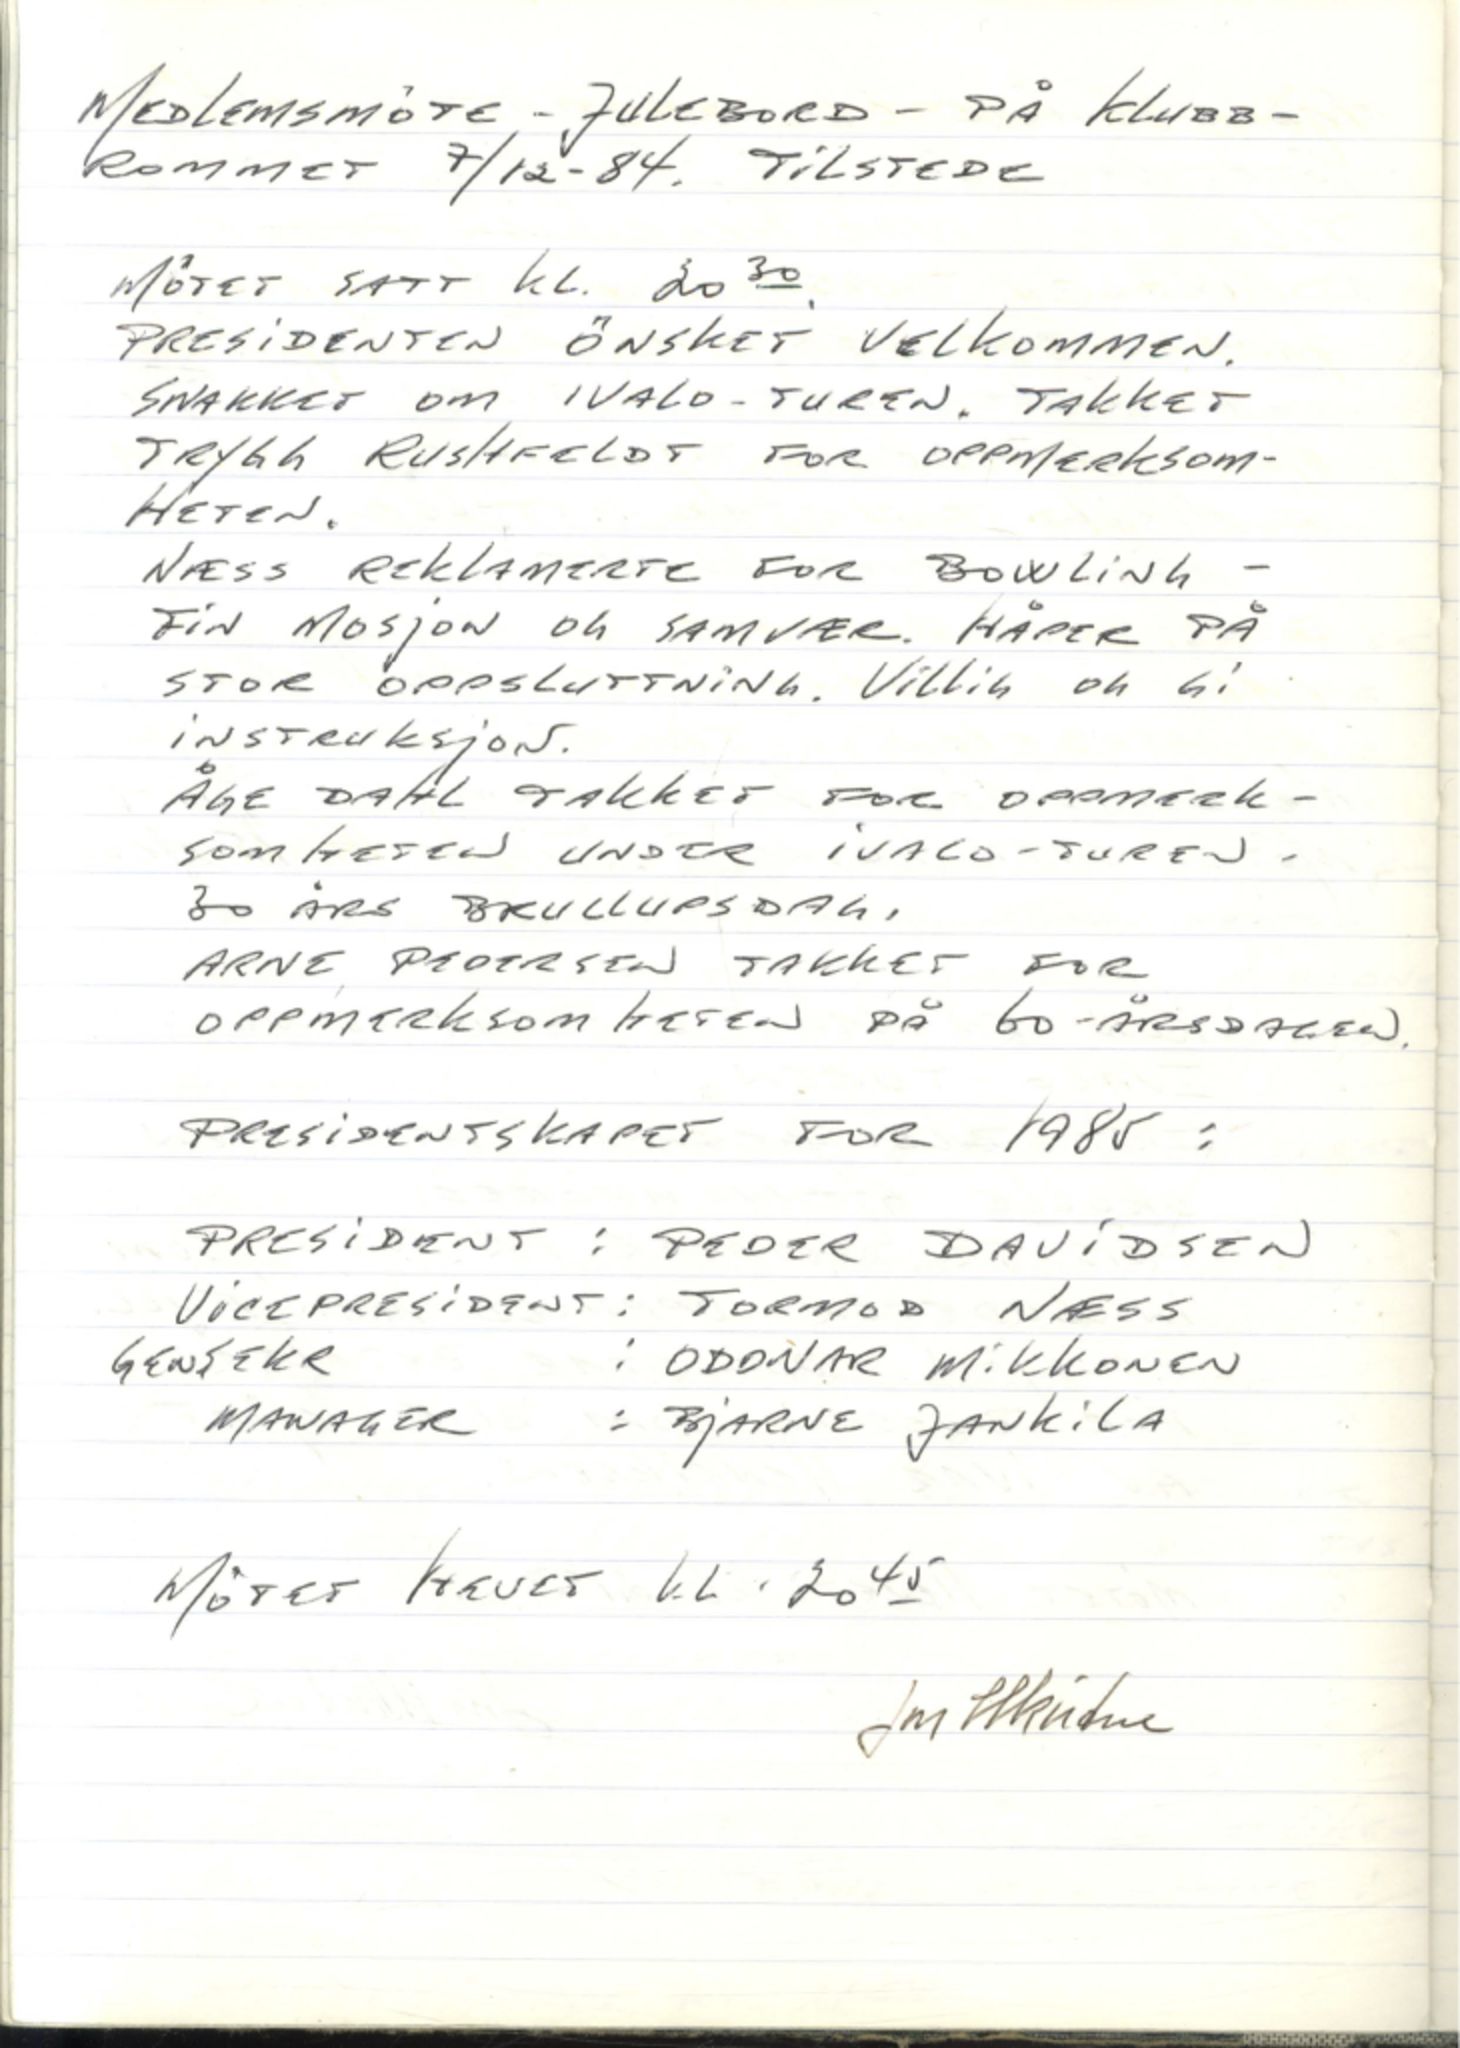 MEDLEMSMÖTE - JULEBORD - PÅ KLUBB-
ROMMET 7/12-84. TILSTEDE
MÖTET SATT KL. 20 30.
PRESIDENTEN ÖNSKET VELKOMMEN.
SNAKKET OM IVALO-TUREN. TAKKET
TRYGG RUSHFELDT FOR OPPMERKSOM-
HETEN.
NÆSS REKLAMERTE FOR BOWLING -
FIN MOSJON OG SAMVÆR. HÅPER PÅ
STOR OPPSLUTTNING. VILLIG OG GI
INSTRUKSJON.
ÅGE DAHL TAKKET FOR OPPMERK-
SOMHETEN UNDER IVALO-TUREN -
30 ÅRS BRULLUPSDAG.
ARNE PEDERSEN TAKKET FOR
OPPMERKSOMHETEN PÅ 60-ÅRSDAGEN.
PRESIDENTSKAPET FOR 1985:
PRESIDENT : PEDER DAVIDSEN
VICEPRESIDENT : TORMOD NÆSS
GENSEKR : ODDNAR MIKKONEN
MANAGER : BJARNE JANKILA
MÖTET HEVET KL. 20 45